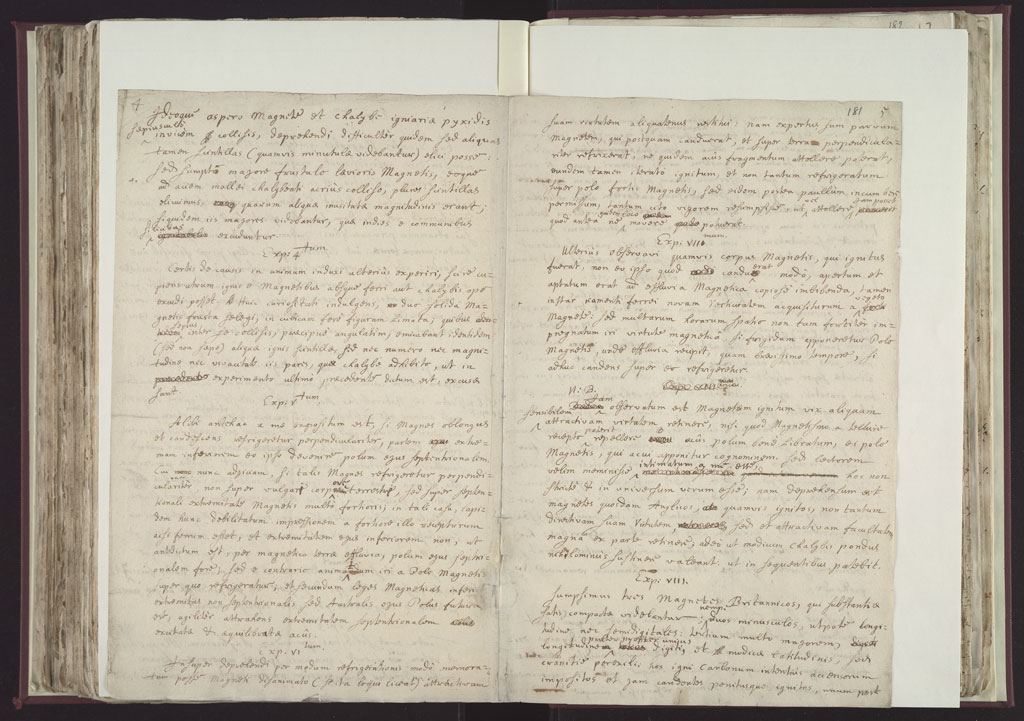 4
Ideoque aspero Magnete et chalybe igniariæ pyxidis
invicem collisis, deprehendi difficulter quidem sed aliquas
tamen scintillas (quamvis minutulæ videbantur) elici posse:
Sed sumpto majore frustulo lævioris Magnetis, eoque
ad aciem mallei chalybeati acrius colliso, plures scintillas
elicuimus, quarum aliquæ inusitatæ magnitudinis erant;
siquidem iis majores videbantur, quæ indies e communibus
excuduntur
Exp: 4 tum
Certis de causis in animum induxi ulterius experiri,
utrum ignis e Magnetibus absque ferri aut chalybis ope
excudi posset. Huic curiositati indulgens, duo solida Ma-
gnetis frusta selegi, in culicam fere figuram limata; quibus
inter se collisis; præcipue angulatim, emicabant identidem
(sed non sæpe) aliquæ ignis scintillæ, sed nec numero nec magni-
tudine nec vivacitate iis pares, quæ chalybe adhibito, ut in
experimento ultimo præcedente dictum est, excussæ
sunt.
Exp: V tum
Alibi antehac a me expositum est, si Magnes oblongus
et candescens refrigeretur perpendiculariter, partem extre-
mam inferiorem eo ipso devenire polum ejus septentrionalem.
Cui nunc adjiciam, si talis Magnes refrigeretur perpendi-
culariter non super vulgari corpore terrestri, sed super septen-
trionali extremitate Magnetis multo fortioris; in tali casu, lapi-
dem hunc debilitatum impressionem a fortiore illo recepturum
esse, et extremitatem ejus inferiorem non, ut
antedictum est, per magnetica terræ effluvia, polum ejus septentri-
onalem fore; sed e contrario a Polo Magnetis
super quo refrigeratur; et secundum leges Magneticas inferior
extremitas non septentrionalis sed Australis ejus Polus futura
est, agiliter attrahens extremitatem septentrionalem
excitatæ & æquilibratæ acus.
Exp. VI tum
Insuper deprehendi per modum refrigerationis modo memora-
tum posse Magneti disanimato (si ita loqui liceat) attractivam
181
5
suam virtutem aliquatenus restitui: nam expertus sum parvum
Magnetem, qui postquam canduerat, et super terram perpendicula-
riter refrixerat, ne quidem acus fragmentum attollere poterat,
eundem tamen iterato ignitum, et non tantum refrigeratum
super polo fortis Magnetis, sed eidem postea paullum incumbere
permissum, tantum cito vigorem resumpsisse, ut attollere posset
quod antea ne movere potuerat.
Exp: VII mum.
Ulterius observavi quamvis corpus Magnetis, qui ignitus
fuerat, non eo ipso quod modo, apertum et
aptatum erat ad effluvia Magnetica copiose imbibenda, tamen
instar ramenti ferrei novam verticitatem acquisiturum a vegeto
Magnete: sed multarum horarum spatio non tam fortiter im-
pregnatum iri virtute magnetica si frigidum apponeretur Polo
Magnetis, unde effluvia recepit, quam brevissimo tempore, si
adhuc candens super eo refrigeretur.
N: B.
observatum est Magnetem ignitum vix aliquam
sensibilem attractivam virtutem retinere, nisi quod Magnetismo a tellure
recepto repellere acus polum bene libratum, eo polo
Magnetis, qui acui apponitur cognominem. Sed lectorem
velim meminisse intimatum a me esse, hoc non
stricte & in universum verum esse; nam deprehensum est
magnetes quosdam Anglicos, quamvis ignitos, non tantum
directivam suam Virtutem, sed et attractivam facultatem
magna ex parte retinere; adeo ut modicum chalybis pondus
nihilominus sustinere valeant. ut in sequentibus patebit.
Exp: VIII.
Sumpsimus tres Magnetes Britannicos, qui substantiæ
satis compactæ videbantur nempe duos minusculos, utpote longi-
tudine, nec semidigitales: tertium multo majorem,
longitudinem unius digitis et modicæ latitudinis; sed
crassitie perexili: hos igni carbonum intentius accensorum
impositos et jam candentes penitusque ignitos, unum post